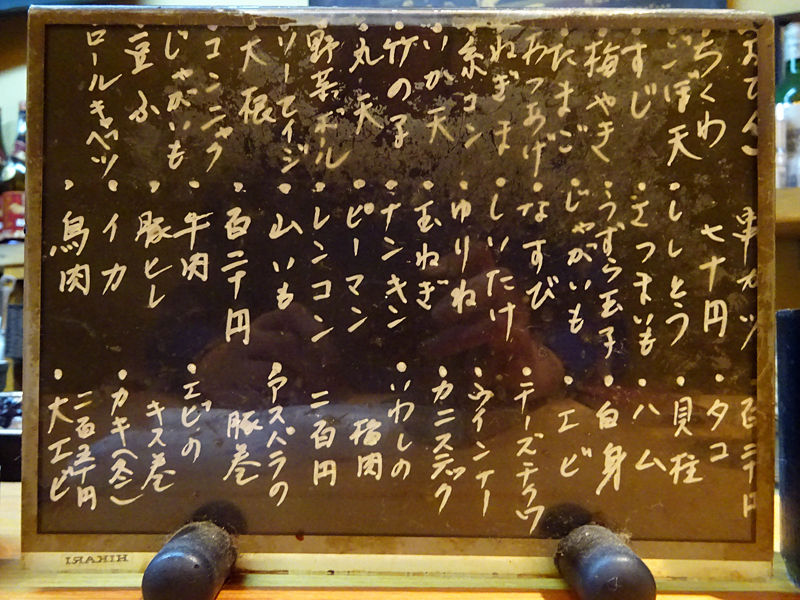 おでん
・ちくわ
・ごぼ天
・すじ
・梅やき
・たまご
・あつあげ
・ねぎま
・糸コン
・いか天
・竹の子
・丸天
・野菜ボール
・ソーセイジ
・大根
・コンニャク
・じゃがいも
・豆ふ
・ロールキャベツ
串カツ
七十円
・ししとう
・さつまいも
・うずら玉子
・じゃがいも
・なすび
・しいたけ
・ゆりね
・玉ねぎ
・ナンキン
・ピーマン
・レンコン
・山いも
百二十円
・牛肉
・豚ヒレ
・イカ
・鳥肉
百二十円
・タコ
・貝柱
・ハム
・白身
・エビ
・チーズチクワ
・ウインナー
・カニステック
・いわしの
梅肉
二百円
・アスパラの
豚巻
・エビの
キス巻
・カキ
二百五十円
・大エビ
HIKARI